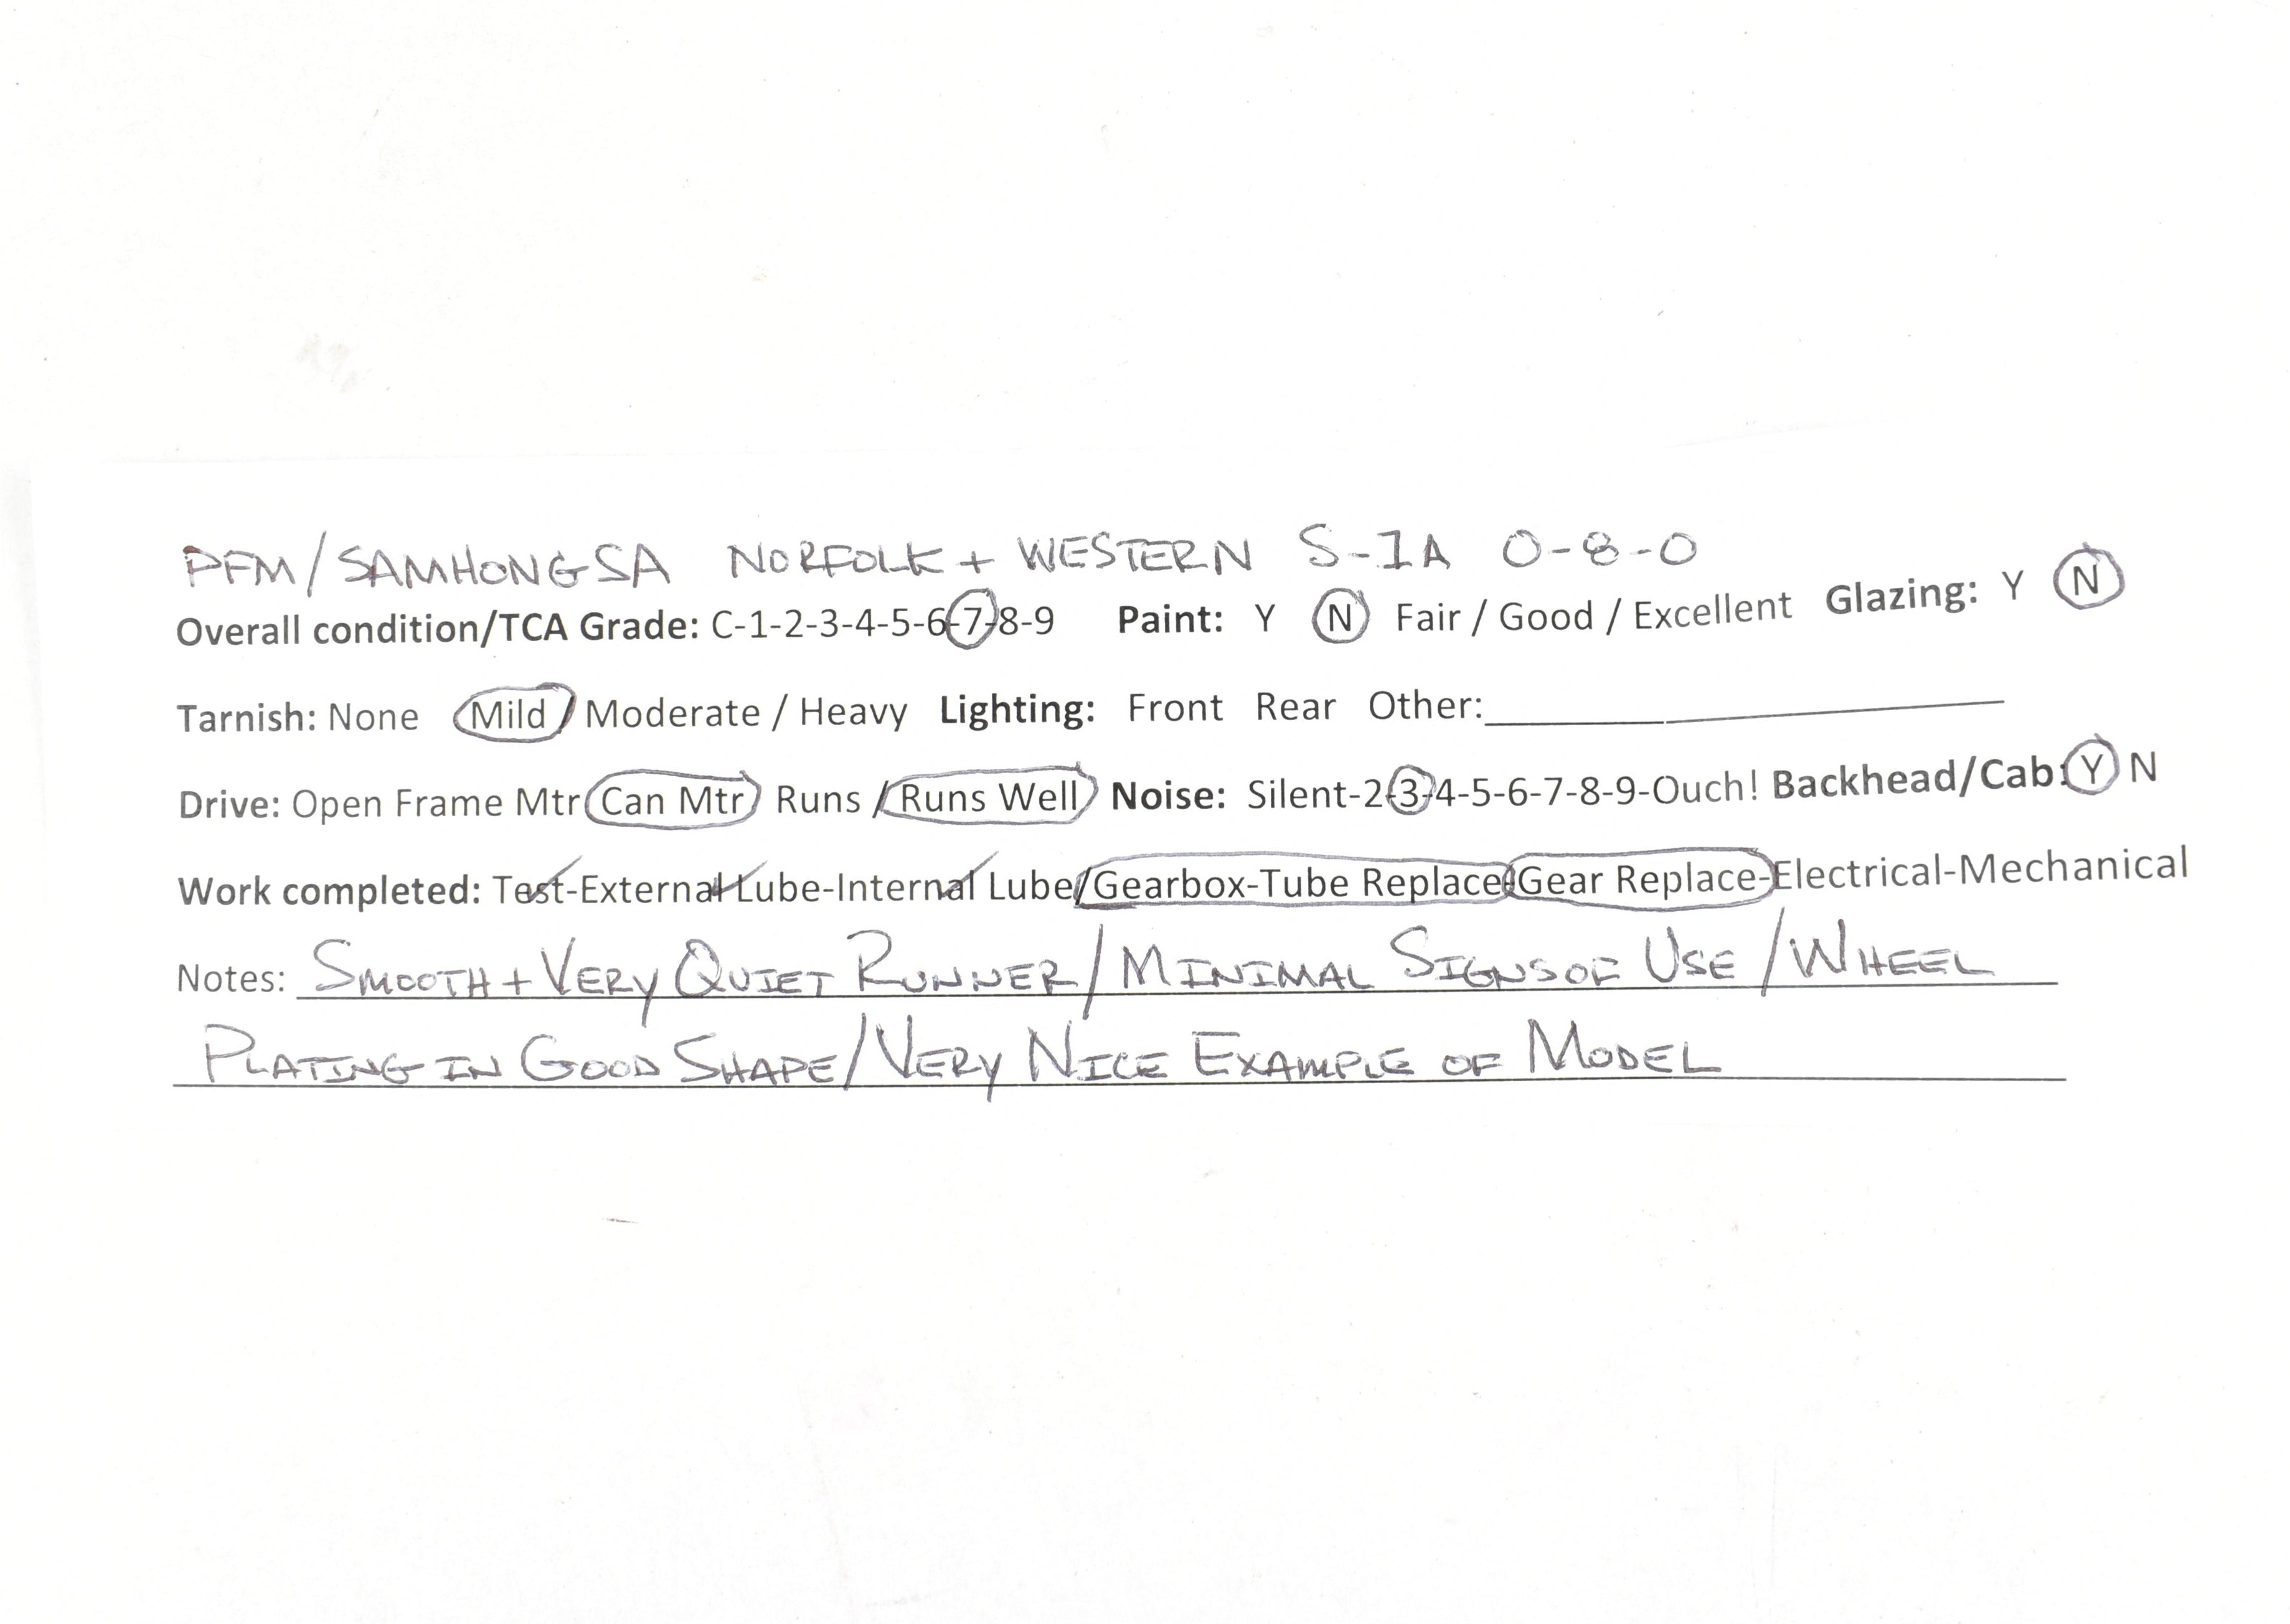 PFM/SAMHONGSA NORFOLK + WESTERN S-1A 0-8-0
Overall condition/TCA Grade: C-1-2-3-4-5-6-7-8-9 Paint: Y N Fair / Good / Excellent Glazing: Y N
Tarnish: None Mild / Moderate / Heavy Lighting: Front Rear Other:
Drive: Open Frame Mtr Can Mtr Runs / Runs Well Noise: Silent-2-3-4-5-6-7-8-9-Ouch! Backhead/Cab: Y N
Work completed: Test-External Lube-Internal Lube/Gearbox-Tube Replace-Gear Replace-Electrical-Mechanical
Notes: SMOOTH + VERY QUIET RUNNER / MINIMAL SIGNS OF USE / WHEEL
PLATING IN GOOD SHAPE / VERY NICE EXAMPLE OF MODEL